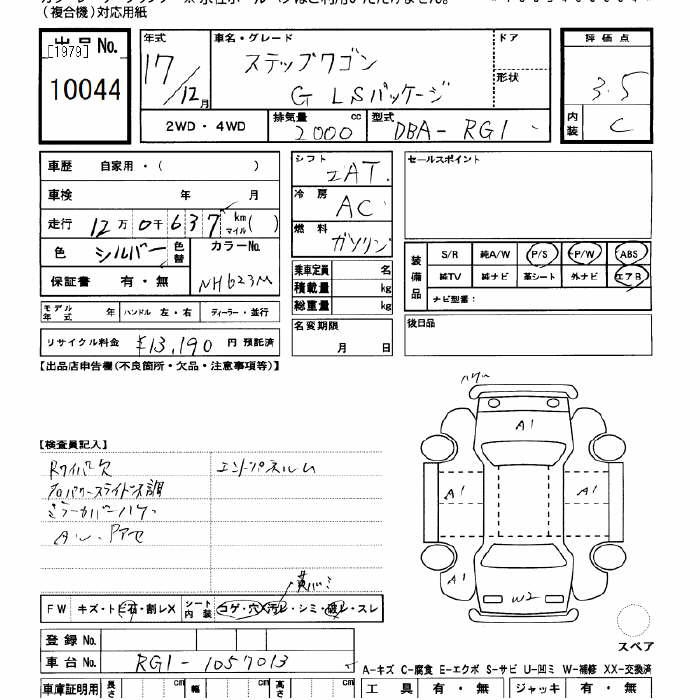 (複合機)対応用紙
出品No.
[1979]
10044
年式
17/12月
車名・グレード
ステップワゴン
G LSパッケージ
ドア
形状
評価点
3.5
内装
C
2WD・4WD
排気量 cc
2000
型式
DBA-RG1
車歴 自家用・( )
車検 年 月
走行 12万0千637 km マイル( )
色 シルバー 色替
カラーNo.
NH623M
保証書 有・無
シフト
AT
冷房
AC
燃料
ガソリン
乗車定員 名
積載量 kg
総重量 kg
セールスポイント
装備品
S/R 純A/W P/S P/W ABS
純TV 純ナビ 革シート 外ナビ エアB
ナビ型番:
モデル年式 年 ハンドル 左・右 ディーラー・並行
リサイクル料金 ¥13,190 円 預託済
名変期限
月 日
後日品
【出品店申告欄(不良箇所・欠品・注意事項等)】
ハゲ
A1
【検査員記入】
Rワイパー欠
パワースライドドア不調
ミラーカバーハゲ
エンジンパネルム
A1
A1
A1
W2
FW キズ・トビ石・割レX
シート内装 コゲ・穴・汚レ・シミ・破レ・スレ
スペア
登録No.
車台No. RG1-1057013
A-キズ C-腐食 E-エクボ S-サビ U-凹ミ W-補修 XX-交換済
車庫証明用 長さ cm 幅 cm 高さ cm
工具 有・無 ジャッキ 有・無